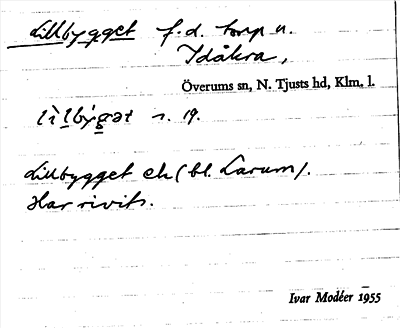 Lillbygget f.d. torp u.
Idåkra,
Överums sn, N. Tjusts hd, Klm. l.
lìlbýgət s. 19.
Lillbygget ek (bl. Larum).
Har rivits.
Ivar Modéer 1955